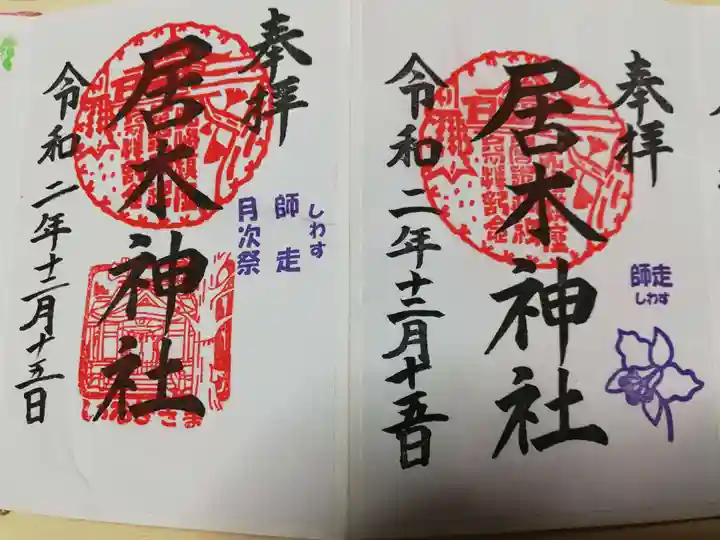 奉拝
居木神社
令和二年十二月十五日
しわす
師走
月次祭
奉拝
居木神社
令和二年十二月十五日
師走
しわす